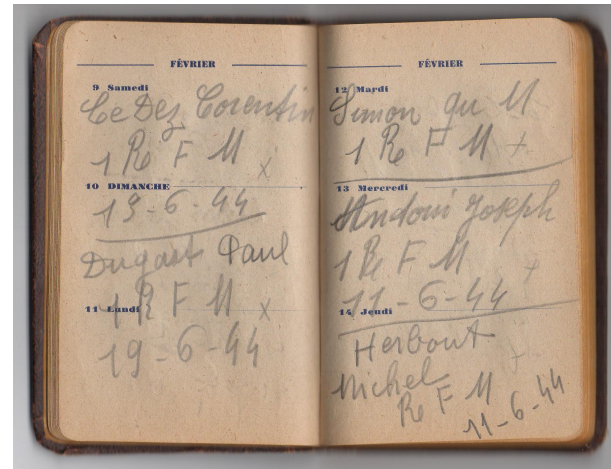 FÉVRIER
9 Samedi
Le Dez Corentin
1 R F M x
10 DIMANCHE
19-6-44
Dugast Paul
11 Lundi
1 R F M x
19-6-44
FÉVRIER
12 Mardi
Simon qu M
1 R F M +
13 Mercredi
Joseph
1 R F M +
11-6-44
14 Jeudi
Herbout +
Michel
R F M
11-6-44